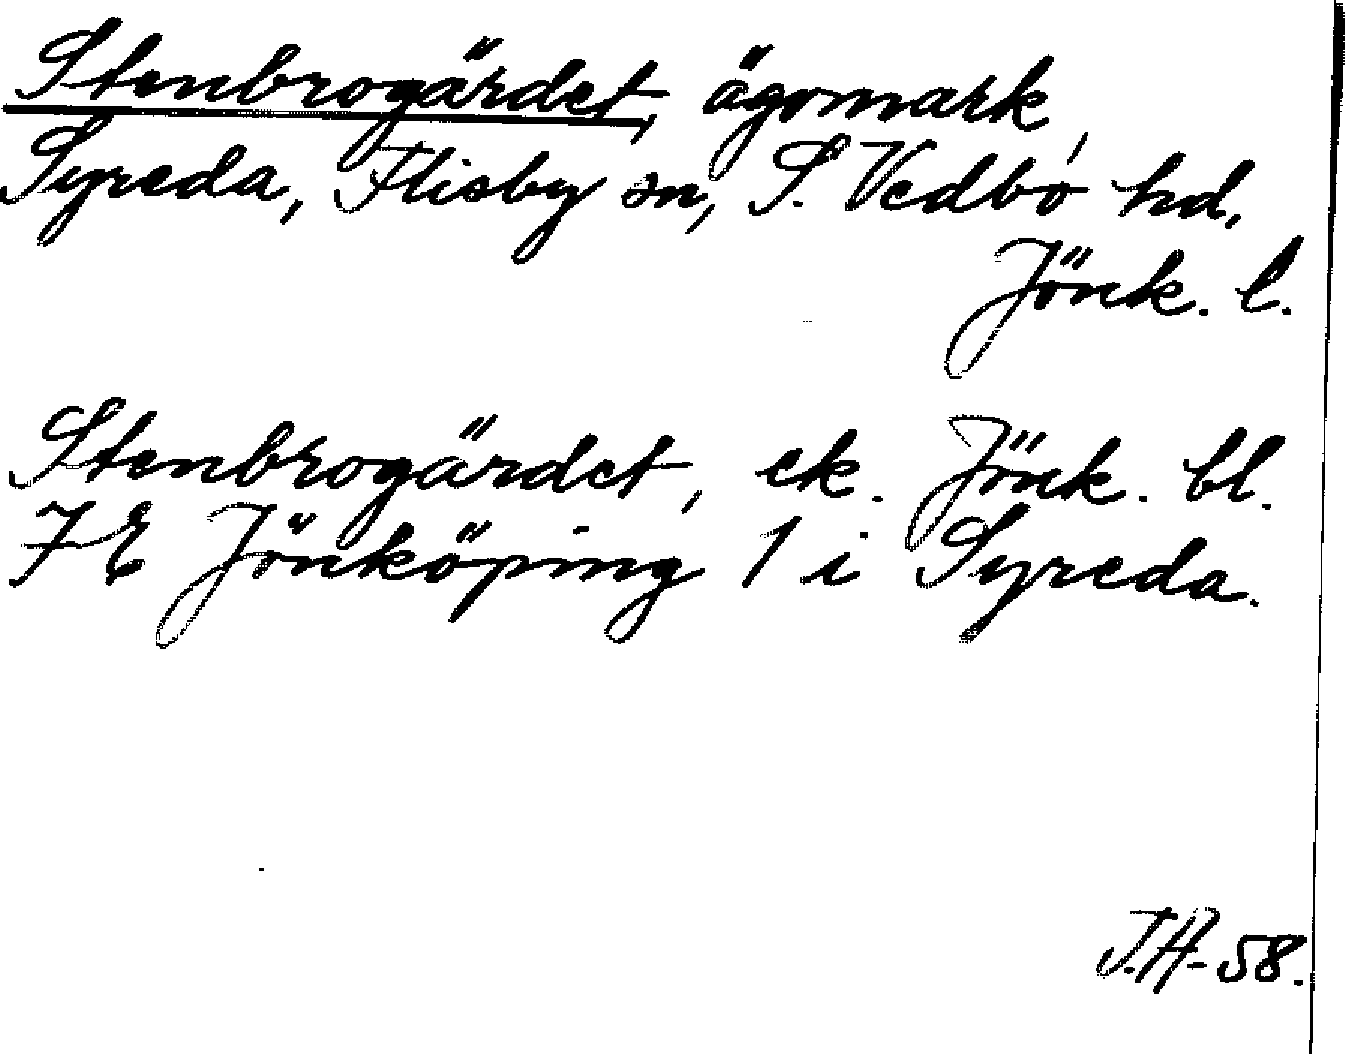 Stenbrogärdet, ägomark,
Syreda, Flisby sn, S. Vedbo hd,
Jönk. l.
Stenbrogärdet, ek. Jönk. bl.
7E Jönköping 1 i Syreda.
J.A-58.